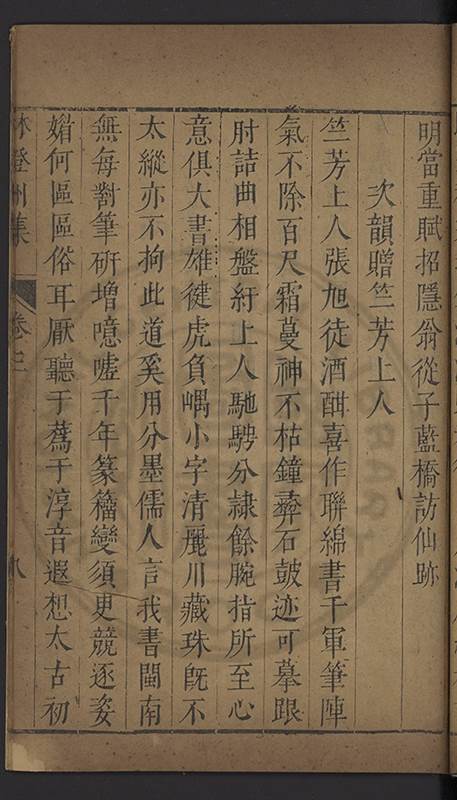 明當重賦招隱翁從子藍橋訪仙跡
次韻贈竺芳上人
竺芳上人張旭徒酒酣喜作聯綿書千軍筆陣
氣不除百尺霜蔓神不枯鐘彝石鼓迹可摹跟
肘詰曲相盤紆上人馳騁分隷餘腕指所至心
意俱大書雄徤虎負嵎小字清麗川藏珠旣不
太縱亦不拘此道奚用分墨儒人言我書閩南
無每對筆硏增噫嘘千年篆籀變須更競逐姿
媚何區區俗耳厭聽于蔿于淳音遐想太古初
林登州集
卷三
八